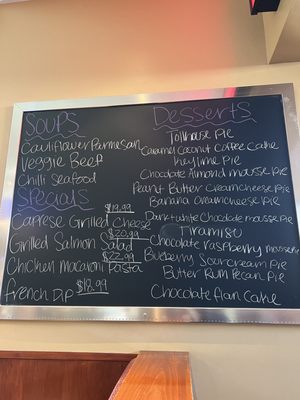 Soups
Cauliflower Parmesan
Veggie Beef
Chilli Seafood
Specials
$19.99
Caprese Grilled Cheese
$20.99
Grilled Salmon Salad
$22.99
Chicken macaroni Pasta
French Dip $18.99
Desserts
Tollhouse Pie
Caramel Coconut Coffee Cake
Key lime Pie
Chocolate Almond mousse Pie
Peanut Butter Creamcheese Pie
Banana Creamcheese Pie
Dark + white Chocolate mousse Pie
Tiramisu
Chocolate raspberry mousse
Blueberry Sourcream Pie
Butter Rum Pecan Pie
Chocolate flan Cake